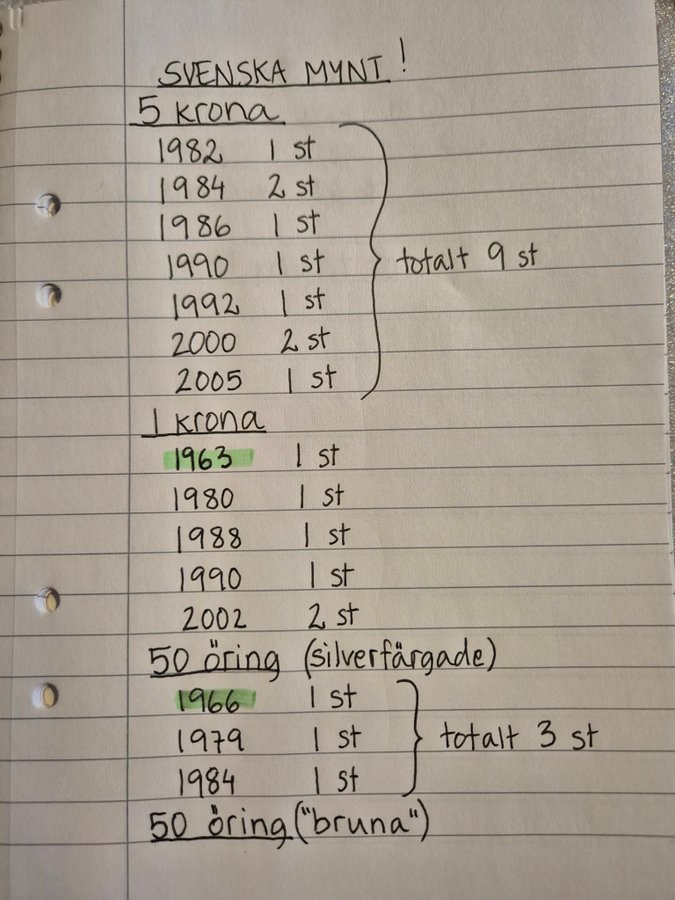 SVENSKA MYNT!
5 krona
1982 1 st
1984 2 st
1986 1 st
1990 1 st
1992 1 st
2000 2 st
2005 1 st
totalt 9 st
1 krona
1963 1 st
1980 1 st
1988 1 st
1990 1 st
2002 2 st
50 öring (silverfärgade)
1966 1 st
1979 1 st
1984 1 st
totalt 3 st
50 öring ("bruna")